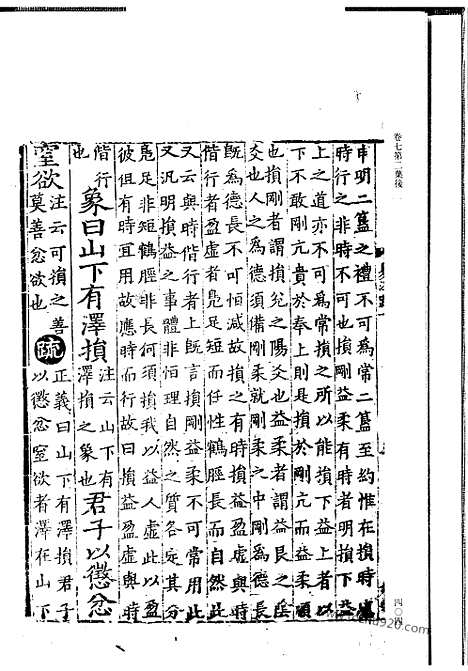 卷七第二葉後
申明二簋之禮不可爲常二簋至約惟在損時應
時行之非時不可也損剛益柔有時者明損下益
上之道亦不可爲常損之所以能損下益上者以
下不敢剛亢貴於奉上則是損於剛亢而益柔順
也損剛者謂損兌之陽爻也益柔者謂益艮之陰
爻也人之爲德須備剛柔就剛柔之中剛爲德長
既爲德長不可恒減故損之有時損益盈虛與時
偕行者盈虛者鳧足短而任性鶴脛長而自然此
又云與時偕行者上既言損剛益柔不可常用此
又汎明損益之事體非恒理自然之質各定其分
鳧足非短鶴脛非長何須損我以益人虛此以盈
彼但有時宜用故應時行故曰損益盈虛與時
偕行也
象曰山下有澤損注云山下有澤損之象也君子以懲忿
窒欲注云可損之善莫善忿欲也疏正義曰山下有澤損君子以懲忿窒欲者澤在山下
四〇四